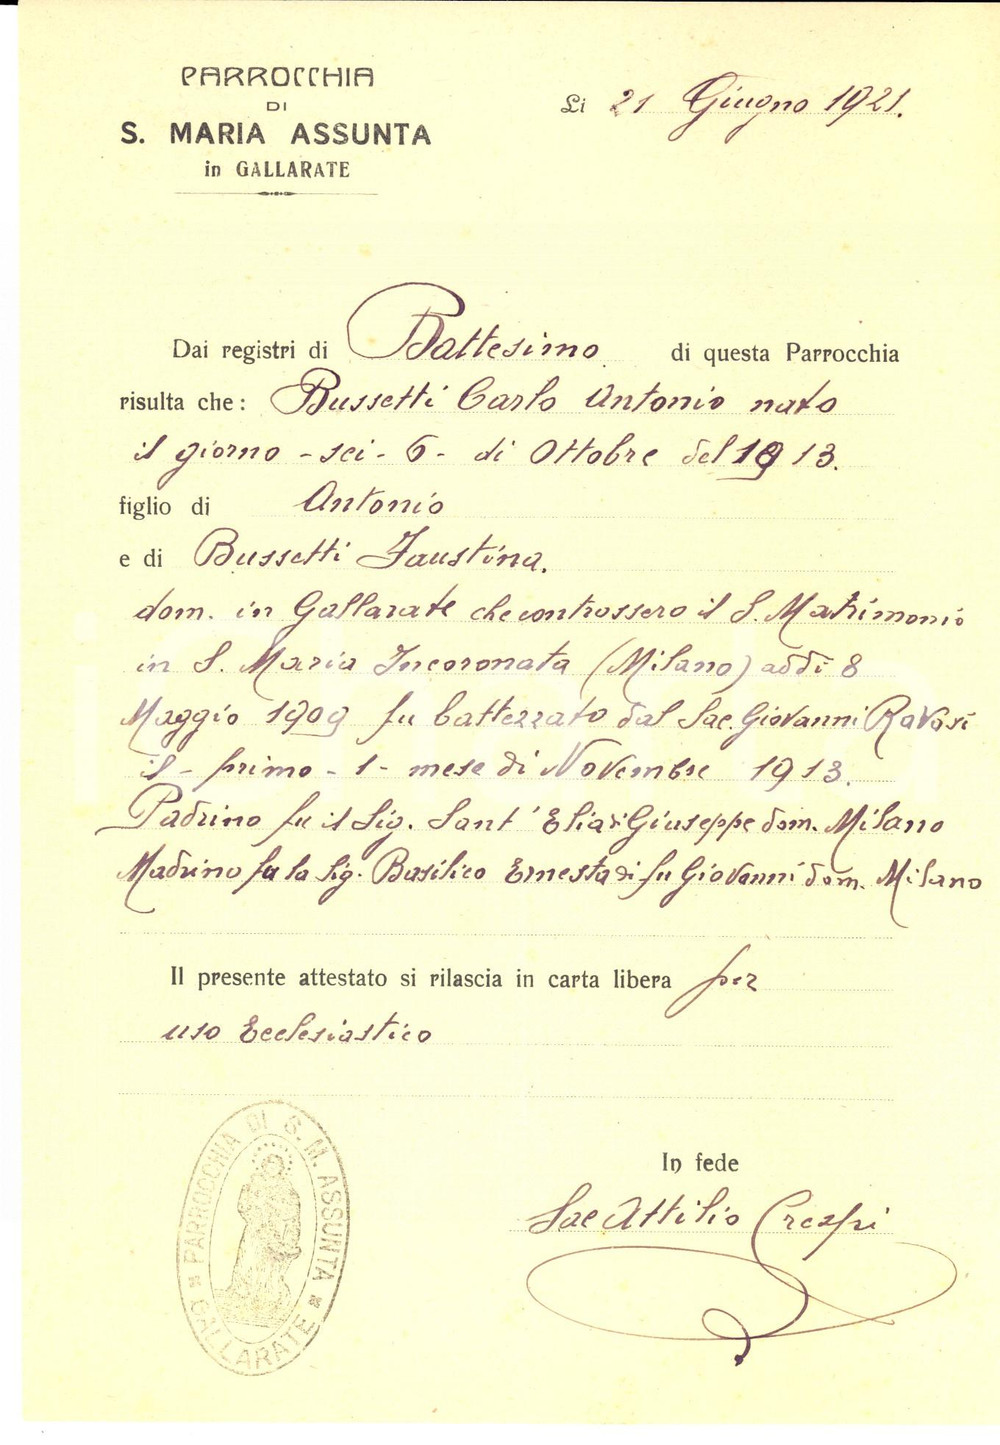 PARROCCHIA
DI
S. MARIA ASSUNTA
in GALLARATE
Li 21 Giugno 1921.
Dai registri di Battesimo di questa Parrocchia
risulta che: Bussetti Carlo Antonio nato
il giorno - sei - 6 - di Ottobre del 1913.
figlio di Antonio
e di Bussetti Faustina.
dom. in Gallarate che controssero il S. Matrimonio
in S. Maria Incoronata (Milano) addì 8
Maggio 1909 fu battezzato dal Sac. Giovanni Ravasi
il - primo - 1 - mese di Novembre 1913.
Padrino fu il Sig. Sant' Elia di Giuseppe dom. Milano
Madrina fu la Sig. Basilico Ernesta di fu Giovanni dom. Milano
Il presente attestato si rilascia in carta libera per
uso Ecclesiastico
In fede
Sac Attilio Crespi
PARROCCHIA DI S. M. ASSUNTA
GALLARATE